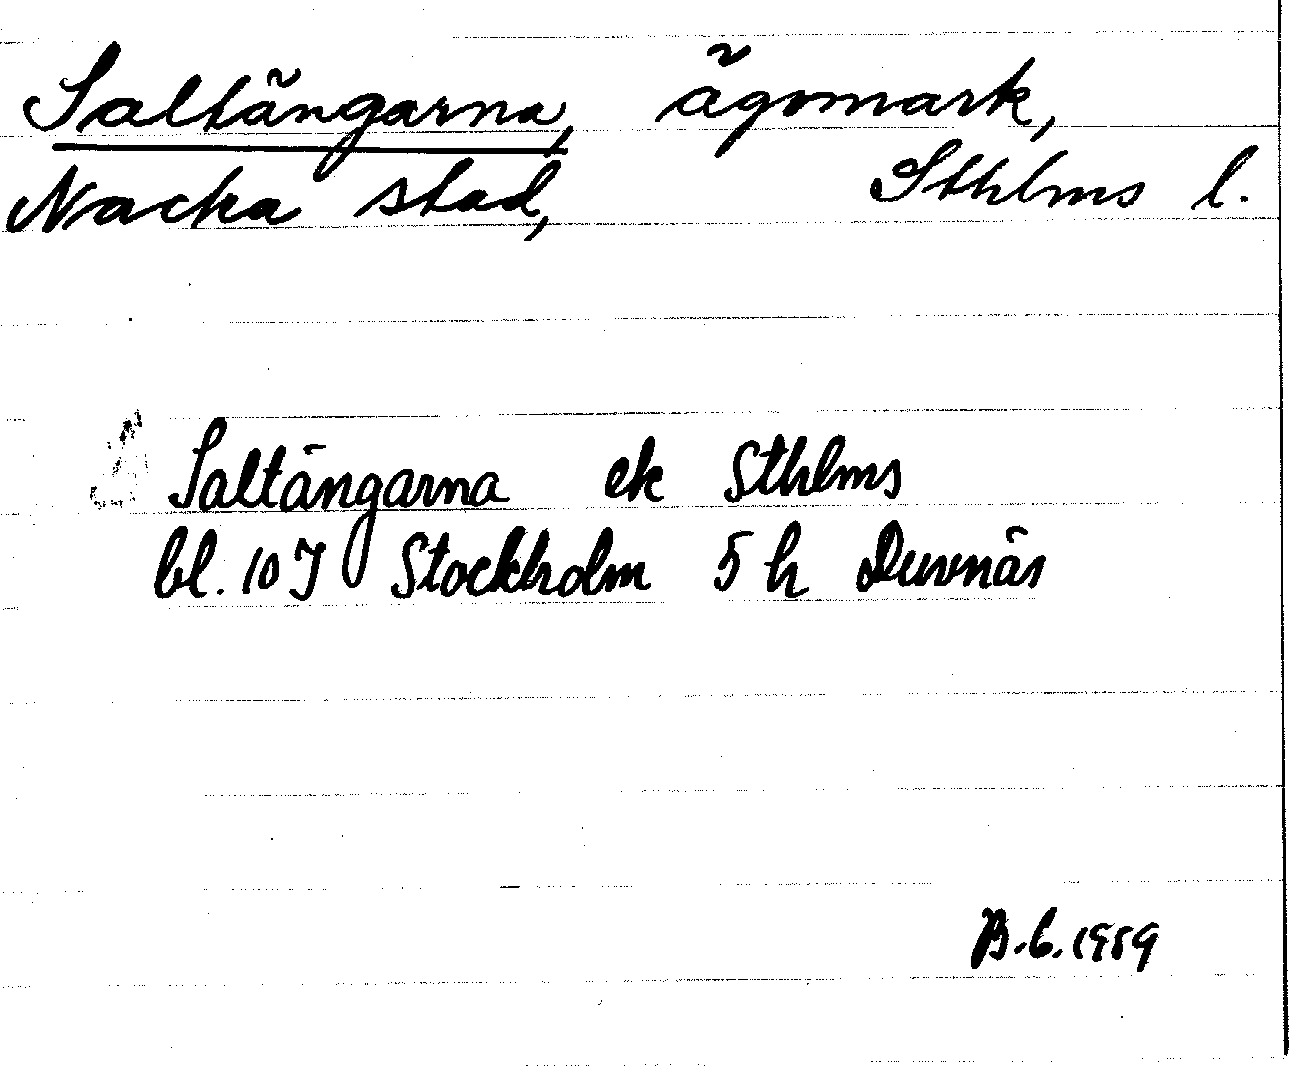 Saltängarna, ägomark,
Nacka stad, Sthlms l.
Saltängarna ek Sthlms
bl. 10 J Stockholm 5 h Duvnäs
B.b. 1959